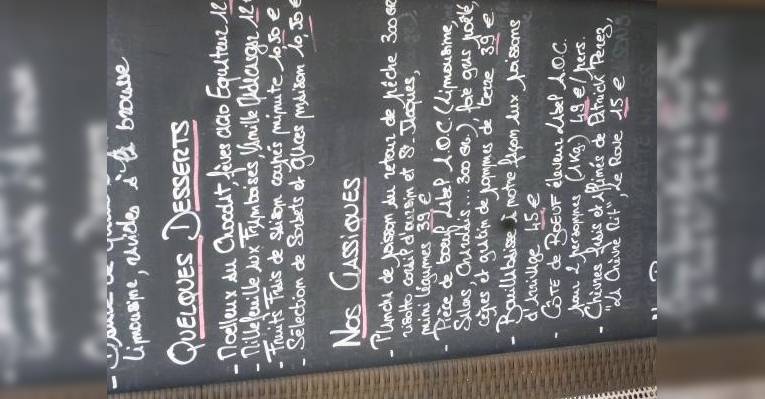 Limousine, olives à la brousse
QUELQUES DESSERTS
- Moelleux au Chocolat fèves cacao Equateur 12
- Millefeuille aux Framboises, Vanille 12
- Fruits Frais de saison coupés minute 10,50 €
- Sélection de Sorbets et glaces maison 10,50 €
NOS CLASSIQUES
- de poisson au retour de pêche 300 gr
risotto corail d'oursin et St. Jacques,
mini légumes 39 €
- Pièce de boeuf Label A.O.C. (Limousine,
Salers, Charolais... 300 gr), foie gras poêlé,
cèpes et gratin de pommes de terre 39 €
- Bouillabaisse à notre façon aux poissons
d'écaillage 45 €
- CÔTE de BOEUF éleveur Label A.O.C.
pour 2 personnes (1Kg) 49 €/pers.
- Chèvres frais et affinés de Patrick Perez,
"Le Chèvre Rit", Le Rove 15 €